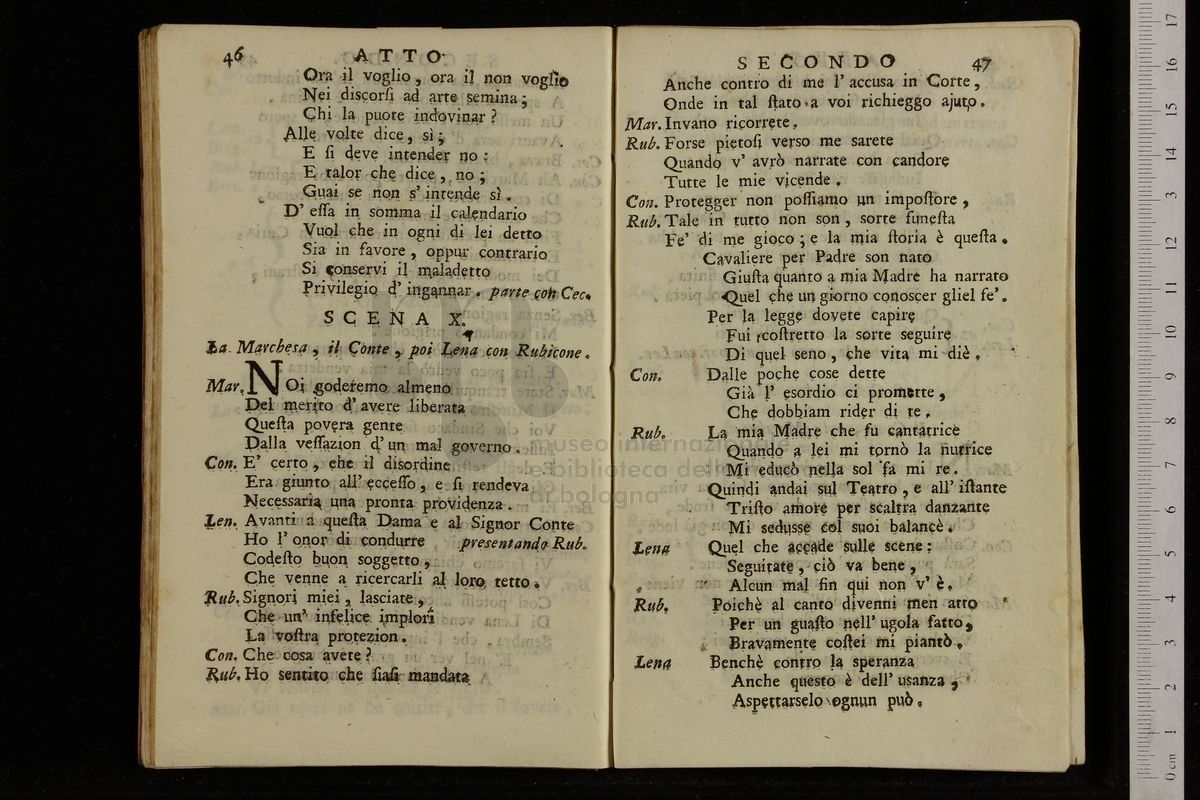 46 ATTO
Ora il voglio, ora il non voglio
Nei discorſi ad arte semina;
Chi la puote indovinar?
Alle volte dice, sì;
E ſi deve intender no:
E talor che dice, no;
Guai se non s' intende sì.
D' eſſa in somma il calendario
Vuol che in ogni di lei detto
Sia in favore, oppur contrario
Si conservi il maladetto
Privilegio d' ingannar. parte con Cec.
SCENA X.
La Marchesa, il Conte, poi Lena con Rubicone.
Mar. NOi goderemo almeno
Del merito d' avere liberata
Queſta povera gente
Dalla veſſazion d' un mal governo.
Con. E' certo, che il disordine
Era giunto all' ecceſſo, e ſi rendeva
Necessaria una pronta providenza.
Len. Avanti a queſta Dama e al Signor Conte
Ho l' onor di condurre presentando Rub.
Codeſto buon soggetto,
Che venne a ricercarli al loro tetto.
Rub. Signori miei, lasciate,
Che un' infelice implori
La voſtra protezion.
Con. Che cosa avete?
Rub. Ho sentito che ſiaſi mandata
SECONDO 47
Anche contro di me l' accusa in Corte,
Onde in tal ſtato a voi richieggo ajuto.
Mar. Invano ricorrete.
Rub. Forse pietoſi verso me sarete
Quando v' avrò narrate con candore
Tutte le mie vicende.
Con. Protegger non poſſiamo un impoſtore,
Rub. Tale in tutto non son, sorte funeſta
Fe' di me gioco; e la mia ſtoria è queſta.
Cavaliere per Padre son nato
Giuſta quanto a mia Madre ha narrato
Quel che un giorno conoscer gliel fe'.
Per la legge dovete capire
Fui coſtretto la sorte seguire
Di quel seno, che vita mi diè.
Con. Dalle poche cose dette
Già l' esordio ci promette,
Che dobbiam rider di te.
Rub. La mia Madre che fu cantatrice
Quando a lei mi tornò la nutrice
Mi educò nella sol fa mi re.
Quindi andai sul Teatro, e all' iſtante
Triſto amore per scaltra danzante
Mi sedusse col suoi balancè.
Lena Quel che accade sulle scene:
Seguitate, ciò va bene,
Alcun mal fin qui non v' è.
Rub. Poichè al canto divenni men atto
Per un guaſto nell' ugola fatto,
Bravamente coſtei mi piantò.
Lena Benchè contro la speranza
Anche queſto è dell' usanza,
Aspettarselo ognun può.
museo internazionale
e biblioteca della musica
di bologna